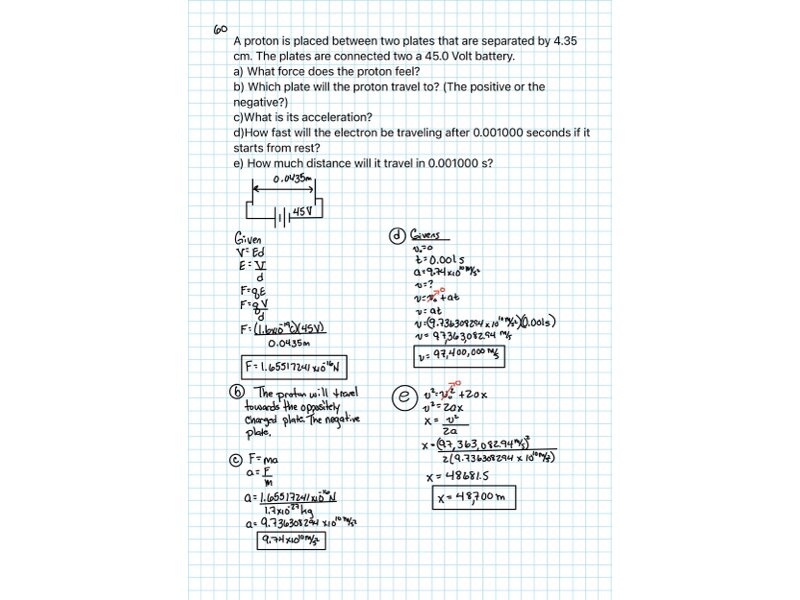 60
A proton is placed between two plates that are separated by 4.35
cm. The plates are connected two a 45.0 Volt battery.
a) What force does the proton feel?
b) Which plate will the proton travel to? (The positive or the
negative?)
c)What is its acceleration?
d)How fast will the electron be traveling after 0.001000 seconds if it
starts from rest?
e) How much distance will it travel in 0.001000 s?
0.0435m
45V
Given
V=Ed
E=V/d
F=qE
F=qV/d
F=(1.6x10⁻¹⁹C)(45V)
0.0435m
F=1.65517241x10⁻¹⁶N
(b) The proton will travel
towards the oppositely
charged plate. The negative
plate.
(c) F=ma
a=F/m
a=1.65517241x10⁻¹⁶N
1.7x10⁻²⁷kg
a=9.736308294x10¹⁰m/s²
9.74x10¹⁰m/s²
(d) Givens
v₀=0
t=0.001s
a=9.74x10¹⁰m/s²
v=?
v=v₀→0+at
v=at
v=(9.736308294x10¹⁰m/s²)(0.001s)
v=97,363,082.94 m/s
v=97,400,000 m/s
(e) v²=v₀²→0+2ax
v²=2ax
x=v²/2a
x=(97,363,082.94m/s)²
2(9.736308294x10¹⁰m/s²)
x=48681.5
x=48,700m